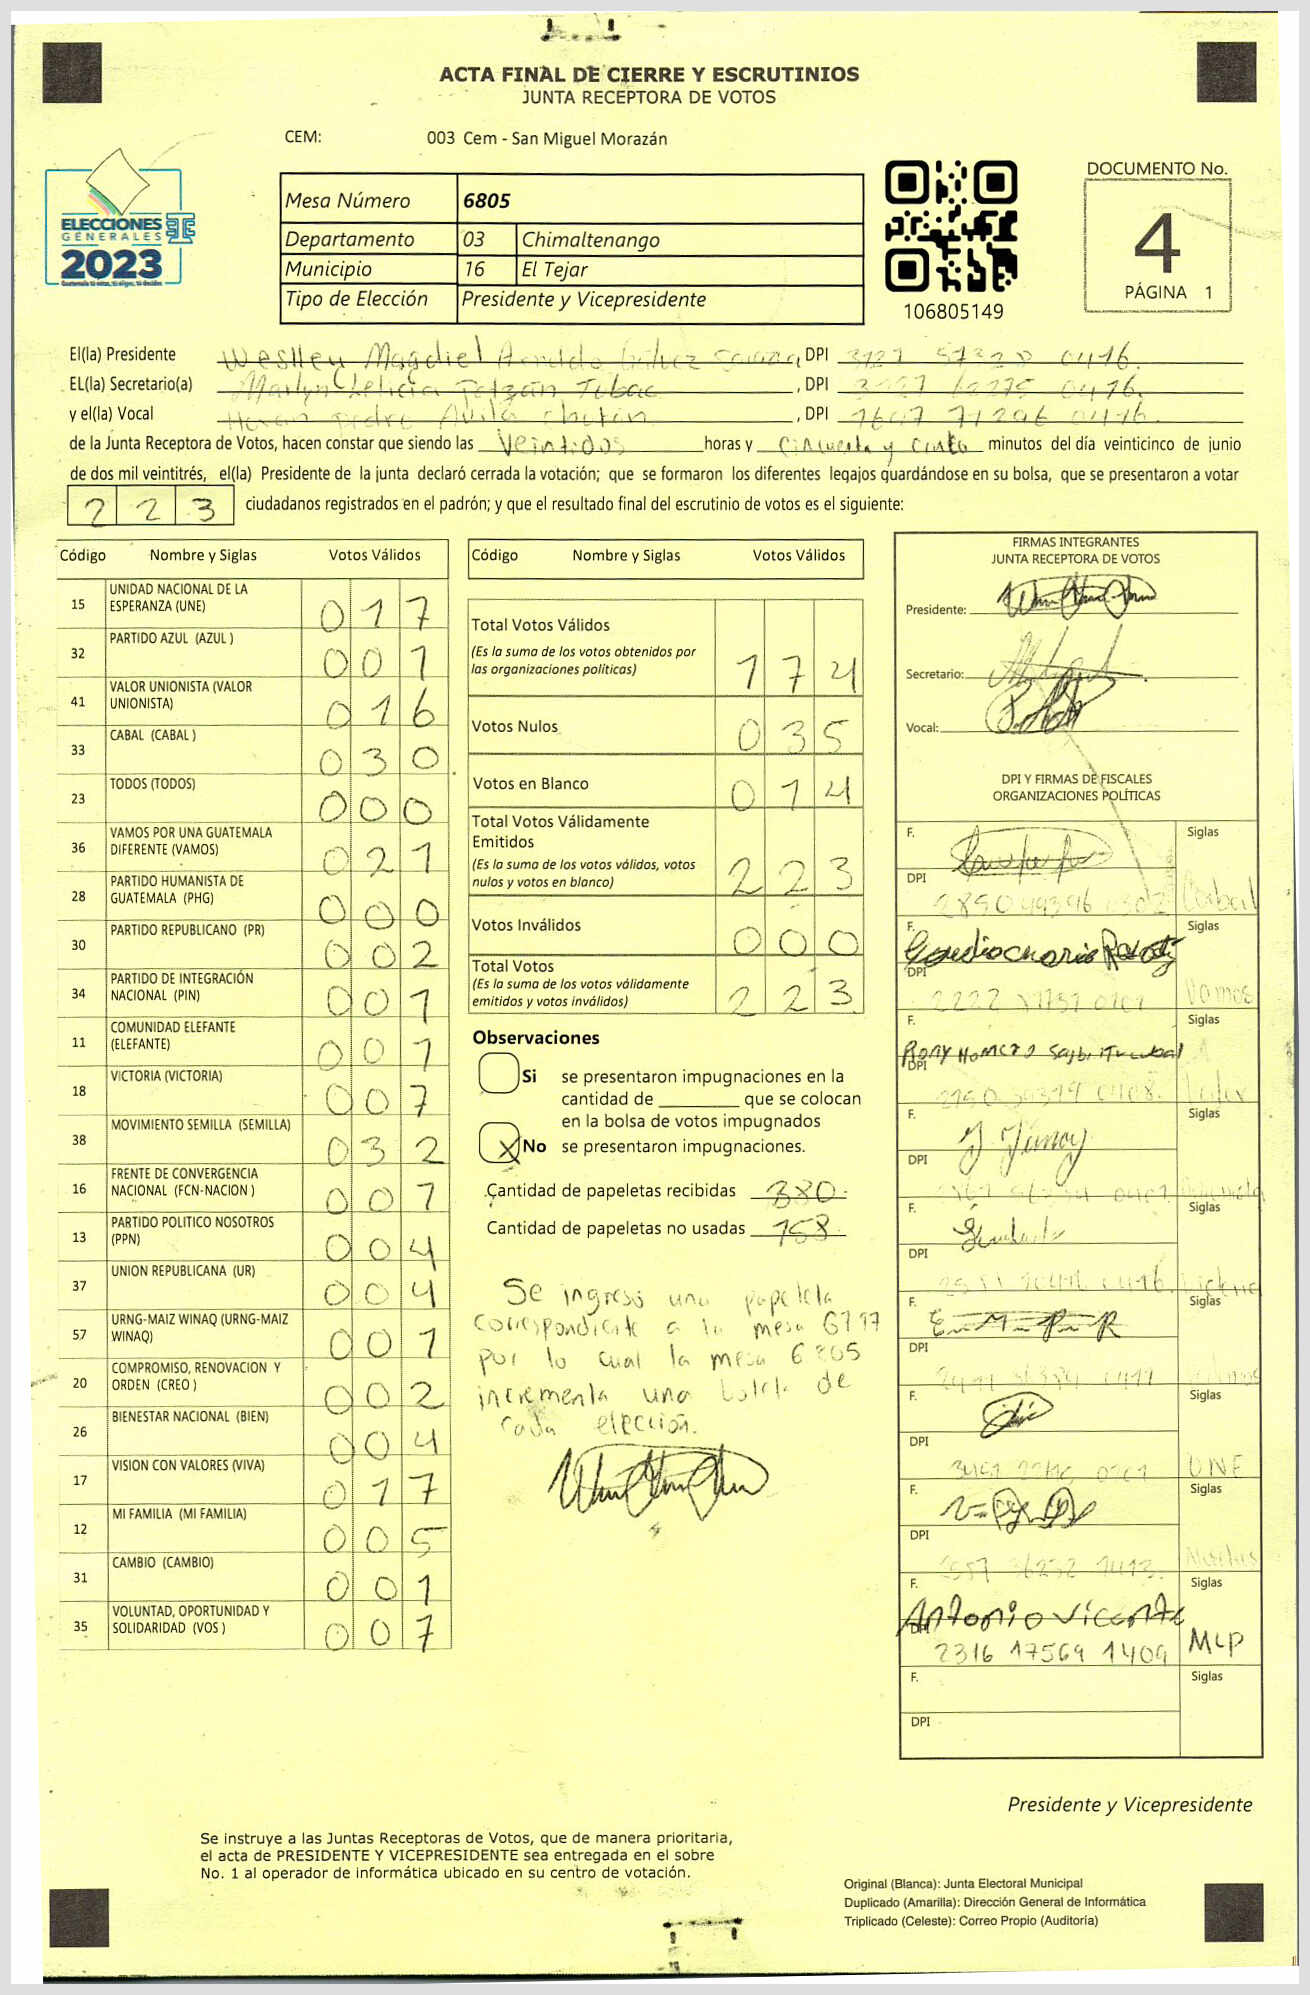 ACTA FINAL DE CIERRE Y ESCRUTINIOS
JUNTA RECEPTORA DE VOTOS
CEM: 003 Cem - San Miguel Morazán
ELECCIONES
GENERALES
2023
Mesa Número 6805
Departamento 03 Chimaltenango
Municipio 16 El Tejar
Tipo de Elección Presidente y Vicepresidente
106805149
DOCUMENTO No.
4
PÁGINA 1
El(la) Presidente Weslley Magdiel , DPI 0416.
EL(la) Secretario(a) Leticia , DPI 0416.
y el(la) Vocal Pedro Avila , DPI 0416.
de la Junta Receptora de Votos, hacen constar que siendo las Veintidos horas y cincuenta y cinco minutos del día veinticinco de junio
de dos mil veintitrés, el(la) Presidente de la junta declaró cerrada la votación; que se formaron los diferentes legajos guardándose en su bolsa, que se presentaron a votar
223 ciudadanos registrados en el padrón; y que el resultado final del escrutinio de votos es el siguiente:
Código Nombre y Siglas Votos Válidos
15 UNIDAD NACIONAL DE LA ESPERANZA (UNE) 017
32 PARTIDO AZUL (AZUL ) 001
41 VALOR UNIONISTA (VALOR UNIONISTA) 016
33 CABAL (CABAL ) 030
23 TODOS (TODOS) 000
36 VAMOS POR UNA GUATEMALA DIFERENTE (VAMOS) 021
28 PARTIDO HUMANISTA DE GUATEMALA (PHG) 000
30 PARTIDO REPUBLICANO (PR) 002
34 PARTIDO DE INTEGRACIÓN NACIONAL (PIN) 001
11 COMUNIDAD ELEFANTE (ELEFANTE) 001
18 VICTORIA (VICTORIA) 007
38 MOVIMIENTO SEMILLA (SEMILLA) 032
16 FRENTE DE CONVERGENCIA NACIONAL (FCN-NACION ) 007
13 PARTIDO POLITICO NOSOTROS (PPN) 004
37 UNION REPUBLICANA (UR) 004
57 URNG-MAIZ WINAQ (URNG-MAIZ WINAQ) 001
20 COMPROMISO, RENOVACION Y ORDEN (CREO ) 002
26 BIENESTAR NACIONAL (BIEN) 004
17 VISION CON VALORES (VIVA) 017
12 MI FAMILIA (MI FAMILIA) 005
31 CAMBIO (CAMBIO) 001
35 VOLUNTAD, OPORTUNIDAD Y SOLIDARIDAD (VOS ) 007
Código Nombre y Siglas Votos Válidos
Total Votos Válidos 174
(Es la suma de los votos obtenidos por
las organizaciones políticas)
Votos Nulos 035
Votos en Blanco 014
Total Votos Válidamente
Emitidos 223
(Es la suma de los votos válidos, votos
nulos y votos en blanco)
Votos Inválidos 000
Total Votos 223
(Es la suma de los votos válidamente
emitidos y votos inválidos)
Observaciones
Si se presentaron impugnaciones en la
cantidad de ________ que se colocan
en la bolsa de votos impugnados
X No se presentaron impugnaciones.
Cantidad de papeletas recibidas 380
Cantidad de papeletas no usadas 158
Se ingreso una papeleta
correspondiente a la mesa
por lo cual la mesa 6805
incrementa una boleta de
cada elección.
FIRMAS INTEGRANTES
JUNTA RECEPTORA DE VOTOS
Presidente:
Secretario:
Vocal:
DPI Y FIRMAS DE FISCALES
ORGANIZACIONES POLÍTICAS
F. Siglas
DPI Cabal
F. Siglas
DPI Vamos
F. Rony Homero Siglas
DPI
F. Siglas
DPI
F. Siglas
DPI
F. Siglas
DPI
F. Siglas
DPI UNE
F. Siglas
DPI
F. Antonio Vicente Siglas
DPI 2316 17569 1409 MLP
F. Siglas
DPI
Presidente y Vicepresidente
Se instruye a las Juntas Receptoras de Votos, que de manera prioritaria,
el acta de PRESIDENTE Y VICEPRESIDENTE sea entregada en el sobre
No. 1 al operador de informática ubicado en su centro de votación.
Original (Blanca): Junta Electoral Municipal
Duplicado (Amarilla): Dirección General de Informática
Triplicado (Celeste): Correo Propio (Auditoría)